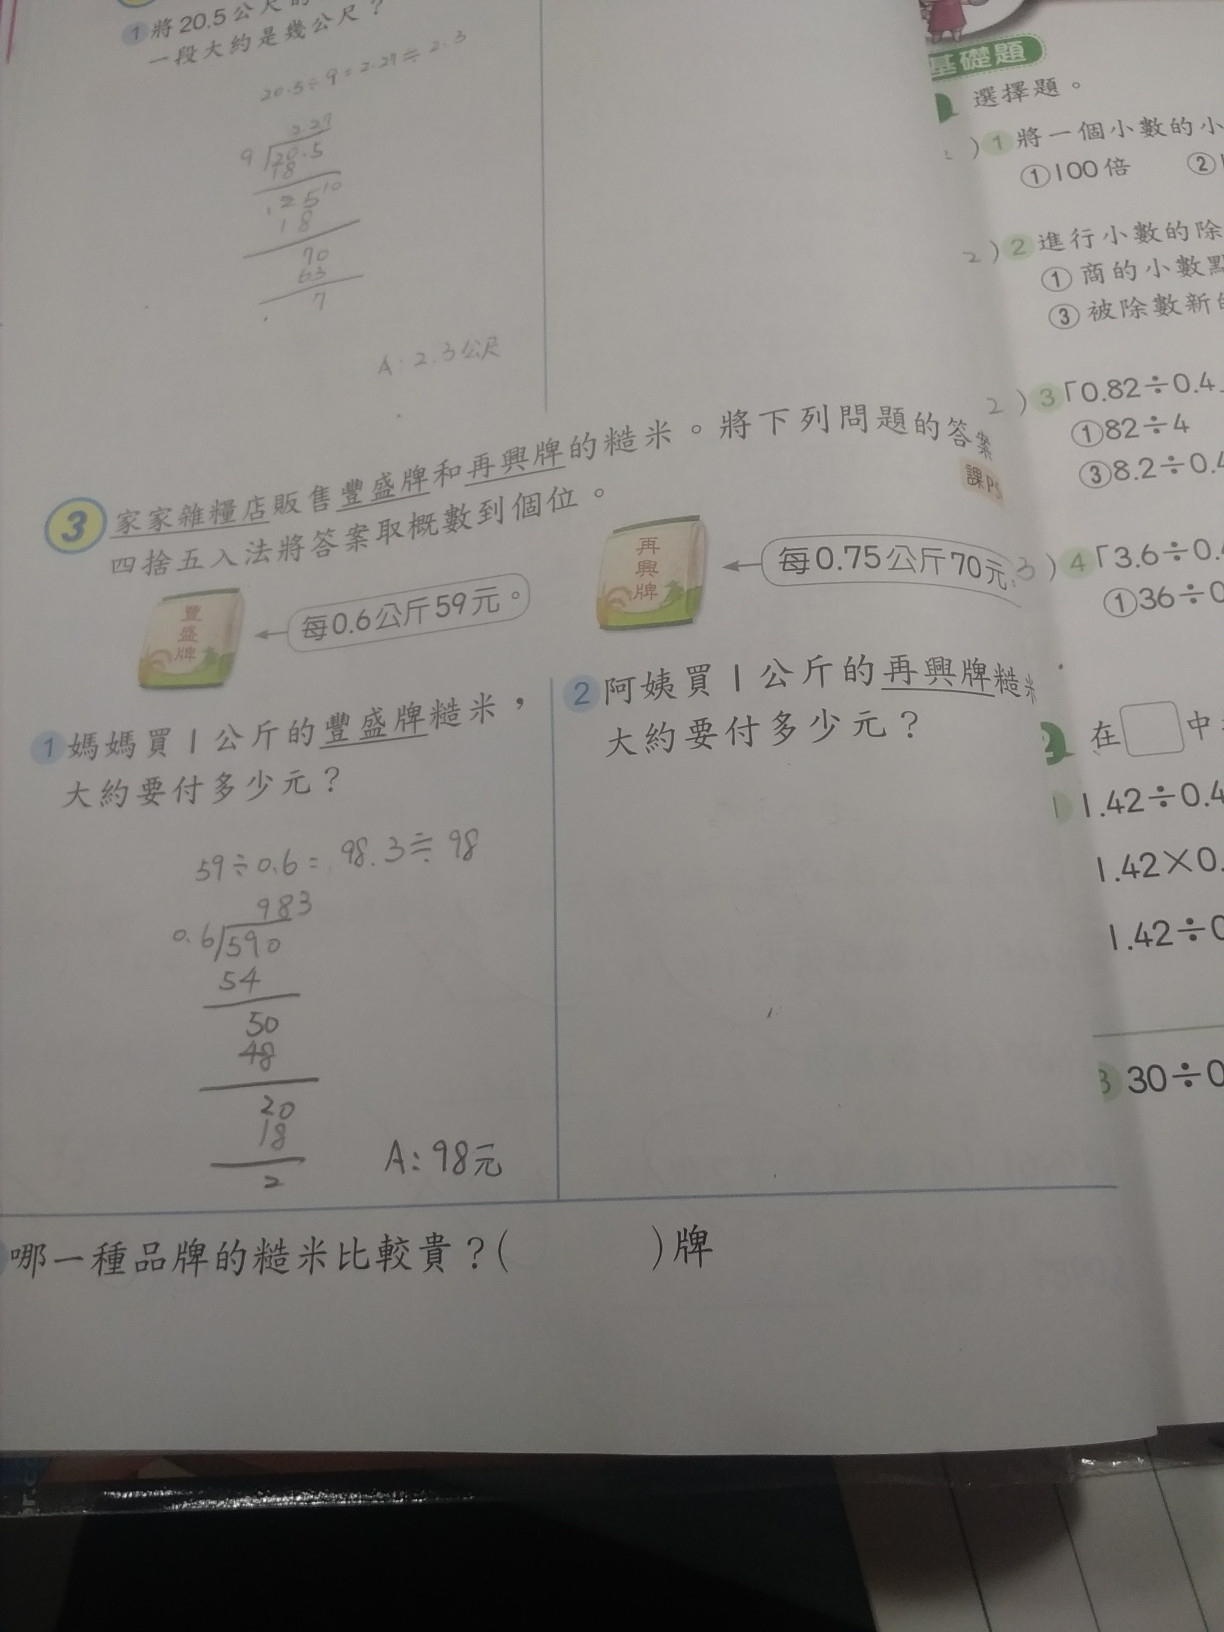 1 將20.5公尺的
一段大約是幾公尺？
20.5÷9=2.27≒2.3
2.27
9 20.5
18
25
18
70
63
7
A:2.3公尺
3 家家雜糧店販售豐盛牌和再興牌的糙米。將下列問題的答案
四捨五入法將答案取概數到個位。
課P5
豐盛牌
每0.6公斤59元。
再興牌
每0.75公斤70元。
1 媽媽買1公斤的豐盛牌糙米，
大約要付多少元？
59÷0.6=98.3≒98
983
0.6 590
54
50
48
20
18
2
A:98元
2 阿姨買1公斤的再興牌糙米
大約要付多少元？
哪一種品牌的糙米比較貴？( )牌
基礎題
選擇題。
) 1 將一個小數的小
①100倍 ②
2) 2 進行小數的除
① 商的小數點
③ 被除數新的
2) 3 「0.82÷0.4
①82÷4
③8.2÷0.4
3) 4 「3.6÷0.
①36÷0
2 在□中
1 1.42÷0.4
1.42×0.
1.42÷0
3 30÷0